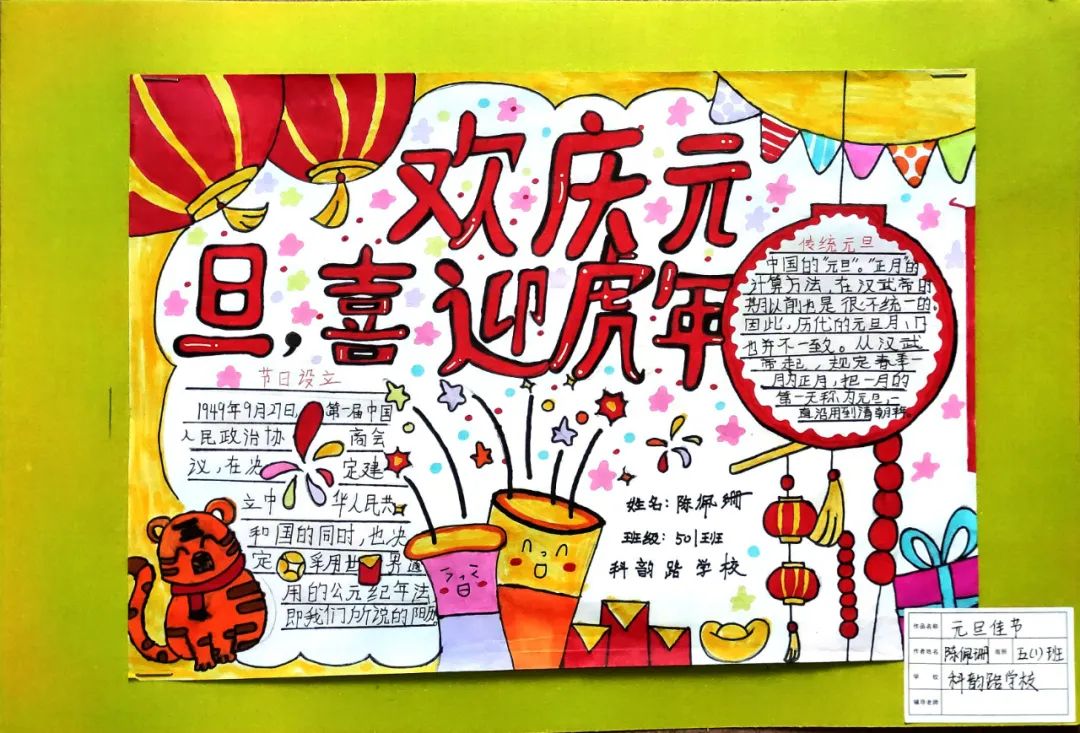 欢庆元
旦，喜迎虎年
传统元旦
中国的"元旦"。"正月"的
计算方法，在汉武帝时
期以前也是很不统一的。
因此，历代的元旦月、日
也并不一致。从汉武
帝起，规定春季一
月为正月，把一月的
第一天称为元旦，一
直沿用到清朝
节日设立
1949年9月27日，第一届中国
人民政治协商会
议，在决定建
立中华人民共
和国的同时，也决
定采用世界通
用的公元纪年法
即我们所说的阳历
姓名：陈佩珊
班级：501班
科韵路学校
作品名称 元旦佳节
作者姓名 陈佩珊 班别 五(1)班
学校 科韵路学校
辅导老师